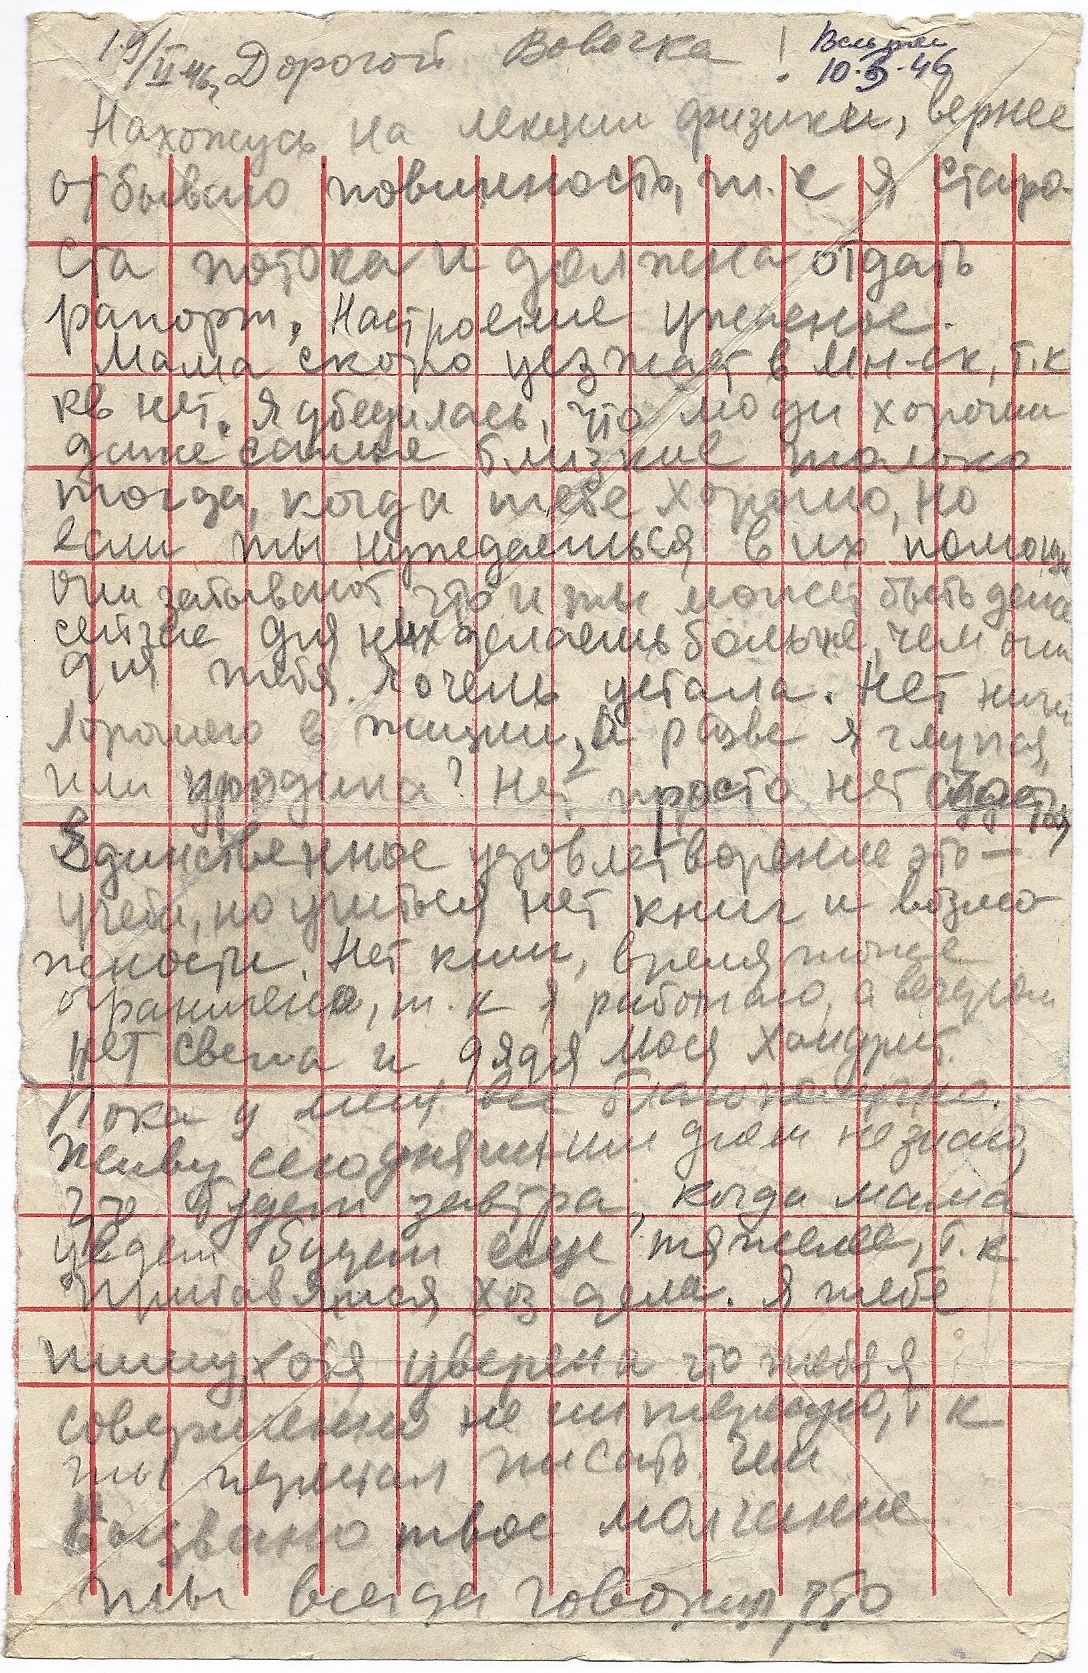 19/II 46, Дорогой Вовочка!
10-3-46
Нахожусь на лекции физики, вернее
отбываю повинность, т. к я старо-
ста потока и должна отдать
рапорт. Настроение ужасное.
Мама скоро уезжает в Мн-ск, т.к
кв нет. Я убедилась, что люди хороши
даже самые близкие только
тогда, когда тебе хорошо, но
если ты нуждаешься в их помощи
они забывают, что и ты может быть даже
сейчас для них делаешь больше, чем они
для тебя. Я очень устала. Нет ниче
хорошего в жизни, а разве я глупая,
или уродина? Нет, просто нет счастья
Единственное удовлетворение это –
учеба, но учиться нет книг и возмо
жности. Нет книг, время тоже
ограничено, т. к я работаю, а вечером
нет света и дядя Мося хандрит.
Пока у меня все благополучно.
Живу сегодняшним днем не знаю,
что будет завтра, когда мама
уедет будет еще тяжелее, т. к
прибавятся хоз дела. Я тебе
пишу, хотя уверена что тебя я
совершенно не интересую, т к
ты перестал писать. Чем
Вызвано твое молчание
ты всегда говорил, что